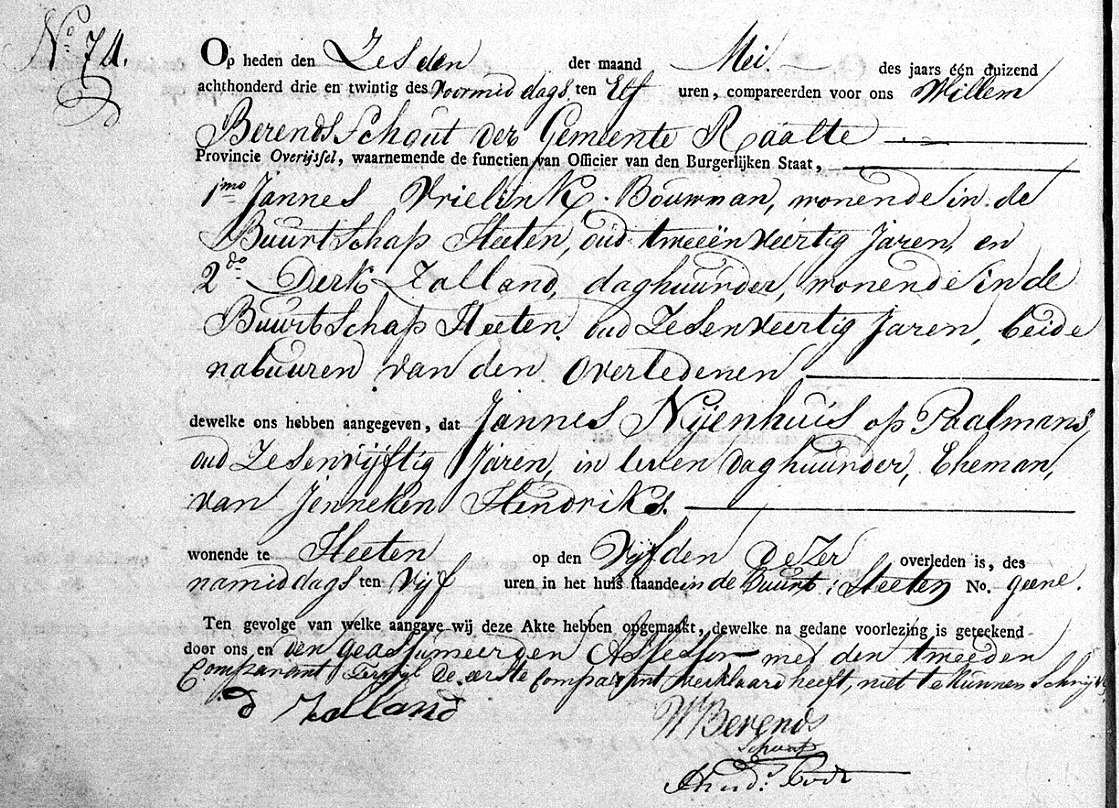 No. 74.
Op heden den Zesden der maand Mei des jaars één duizend
achthonderd drie en twintig des Voormiddags ten Elf uren, compareerden voor ons Willem
Berends Schout der Gemeente Raalte
Provincie Overijssel, waarnemende de functien van Officier van den Burgerlijken Staat,
1mo Jannes Vrielink Bouwman, wonende in de
Buurtschap Heeten, oud tweeënveertig Jaren, en
2do Derk Zalland, daghuurder, wonende in de
Buurtschap Heeten, oud Zesenveertig Jaren, beide
nabuuren van den Overledenen
dewelke ons hebben aangegeven, dat Jannes Nijenhuis op Paalmans,
oud Zesenvijftig Jaren, in leven daghuurder, Eheman,
van Jenneken Hendriks.
wonende te Heeten op den Vijfden dezer overleden is, des
namiddags ten Vijf uren in het huis staande in de Buurt: Heeten No. geene.
Ten gevolge van welke aangave wij deze Akte hebben opgemaakt, dewelke na gedane voorlezing is geteekend
door ons en den geassumeerden Assessor met den tweeden
Comparant Terwijl de eerste Comparant verklaard heeft, niet te kunnen Schrijven
D Zalland
W Berends
Schout